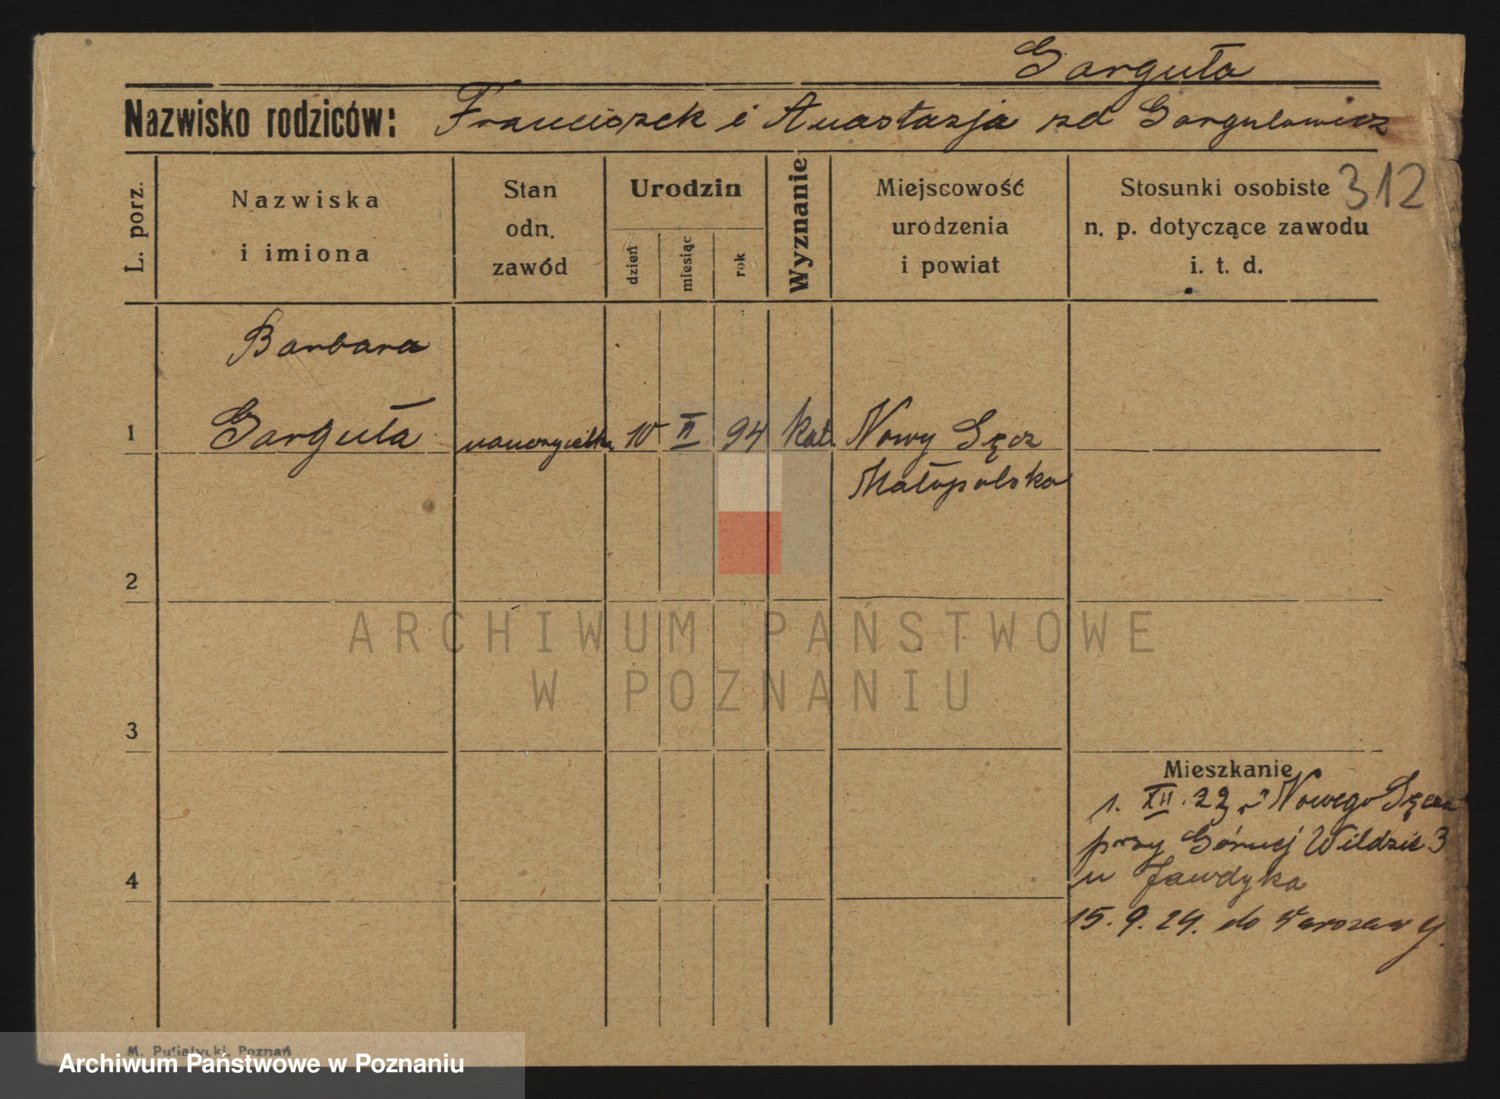 Garguła
Nazwisko rodziców: Franciszek i Anastazja zd Gargulowicz
312
L. porz.
Nazwiska
i imiona
Stan
odn.
zawód
Urodzin
dzień
miesiąc
rok
Wyznanie
Miejscowość
urodzenia
i powiat
Stosunki osobiste
n. p. dotyczące zawodu
i. t. d.
Barbara
1 Garguła nauczycielka 10 II 94 kat. Nowy Sącz
Małopolska
2
3
4
Mieszkanie
1. XII. 22 z Nowego Sącza
przy Górnej Wildzie 3
u Jawdyka
15. 9. 24. do Warszawy.
ARCHIWUM PAŃSTWOWE
W POZNANIU
M. Putiatycki, Poznań
Archiwum Państwowe w Poznaniu